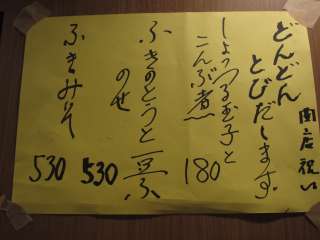 開店祝い
どんどん
とびだします。
しょっつる玉子と
こんぶ煮
180
ふきのとうと豆ふ
のせ
530
ふきみそ
530